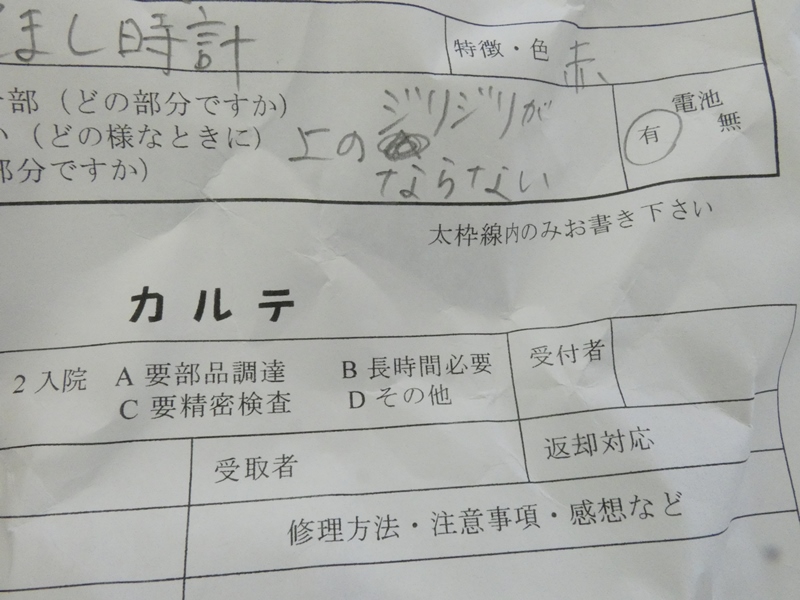 まし時計
特徴・色 赤
部(どの部分ですか)
ジリジリが
電池
い(どの様なときに)
上の
有 無
部分ですか)
ならない
太枠線内のみお書き下さい
カルテ
2 入院 A 要部品調達 B 長時間必要 受付者
C 要精密検査 D その他
受取者 返却対応
修理方法・注意事項・感想など